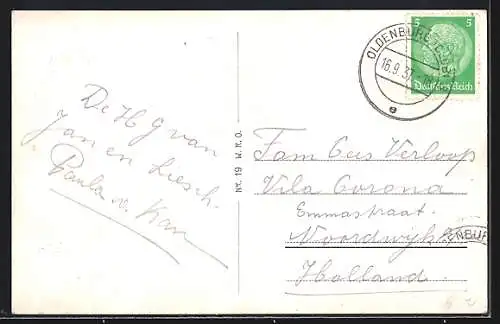 De H G van
Jan en Liesch.
Paula v. Kan
Nr. 19 W.R.O.
OLDENBURG (OLDB)
16.9.37
e
5 5
Deutsches Reich
Fam Geis Verloop
Vila Corona
Emmastraat
Noordwijk
Holland